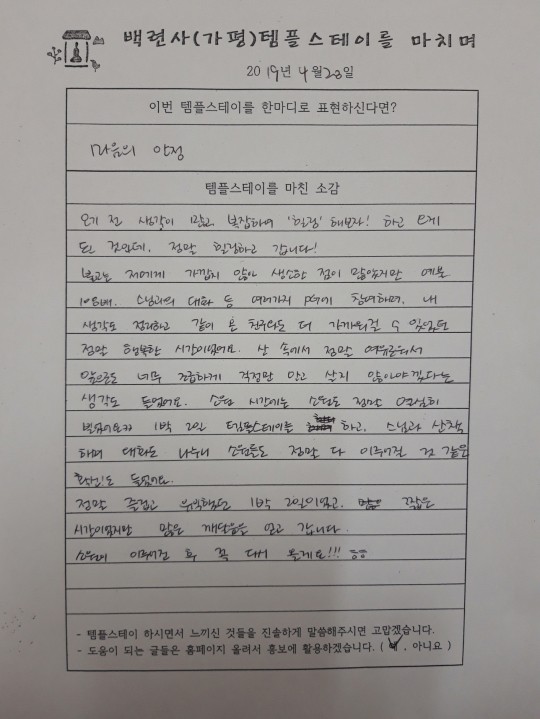 백련사(가평)템플스테이를 마치며
2019년 4월 23일
이번 템플스테이를 한마디로 표현하신다면?
마음의 안정
템플스테이를 마친 소감
오기 전 생각이 많고 복잡하여 '힐링' 해보자! 하고 오게
된 것인데, 정말 힐링하고 갑니다!
불교는 저에게 가깝지 않아 생소한 점이 많았지만 예불
108배, 스님과의 대화 등 여러가지 PG에 참여하며, 내
생각도 정리하고 같이 온 친구와도 더 가까워질 수 있었던
정말 행복한 시간이었어요. 산 속에서 정말 여유로워서
앞으로도 너무 조급하게 걱정만 안고 살지 않아야겠다는
생각도 들었어요. 소원 시간에는 소원도 정말 열심히
빌었어요ㅋㅋ 1박 2일 템플스테이를 하고, 스님과 산책
하며 대화도 나누니 소원들도 정말 다 이루어질 것 같은
확신도 들었어요.
정말 즐겁고 행복했던 1박 2일이었고, 짧은
시간이었지만 많은 깨달음을 얻고 갑니다.
소원이 이루어진 후 꼭 다시 올게요!!!
- 템플스테이 하시면서 느끼신 것들을 진솔하게 말씀해주시면 고맙겠습니다.
- 도움이 되는 글들은 홈페이지 올려서 홍보에 활용하겠습니다. ( 예 , 아니요 )